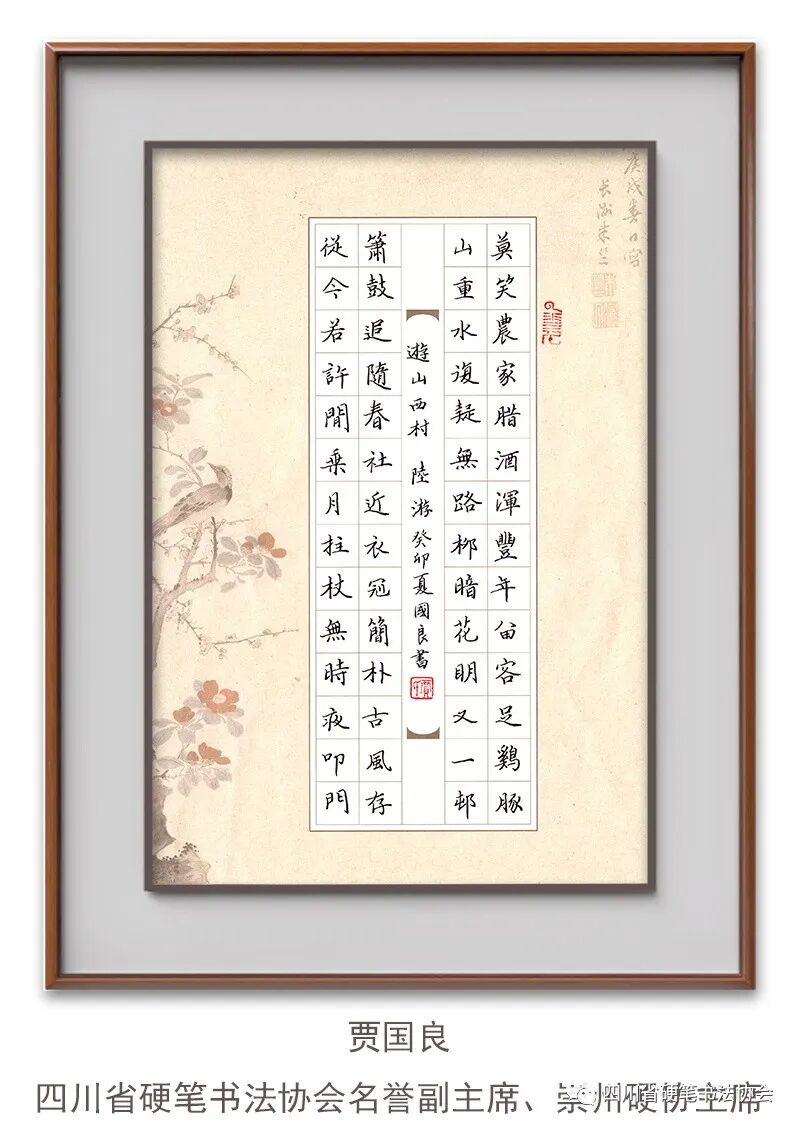 庚戌春日写
莫笑農家腊酒渾豐年留客足鷄豚
山重水復疑無路柳暗花明又一邨
遊山西村 陸游 癸卯夏國良書
簫鼓追隨春社近衣冠簡朴古風存
從今若許閒乘月拄杖無時夜叩門
贾国良
四川省硬笔书法协会名誉副主席、崇州硬协主席
四川省硬笔书法协会